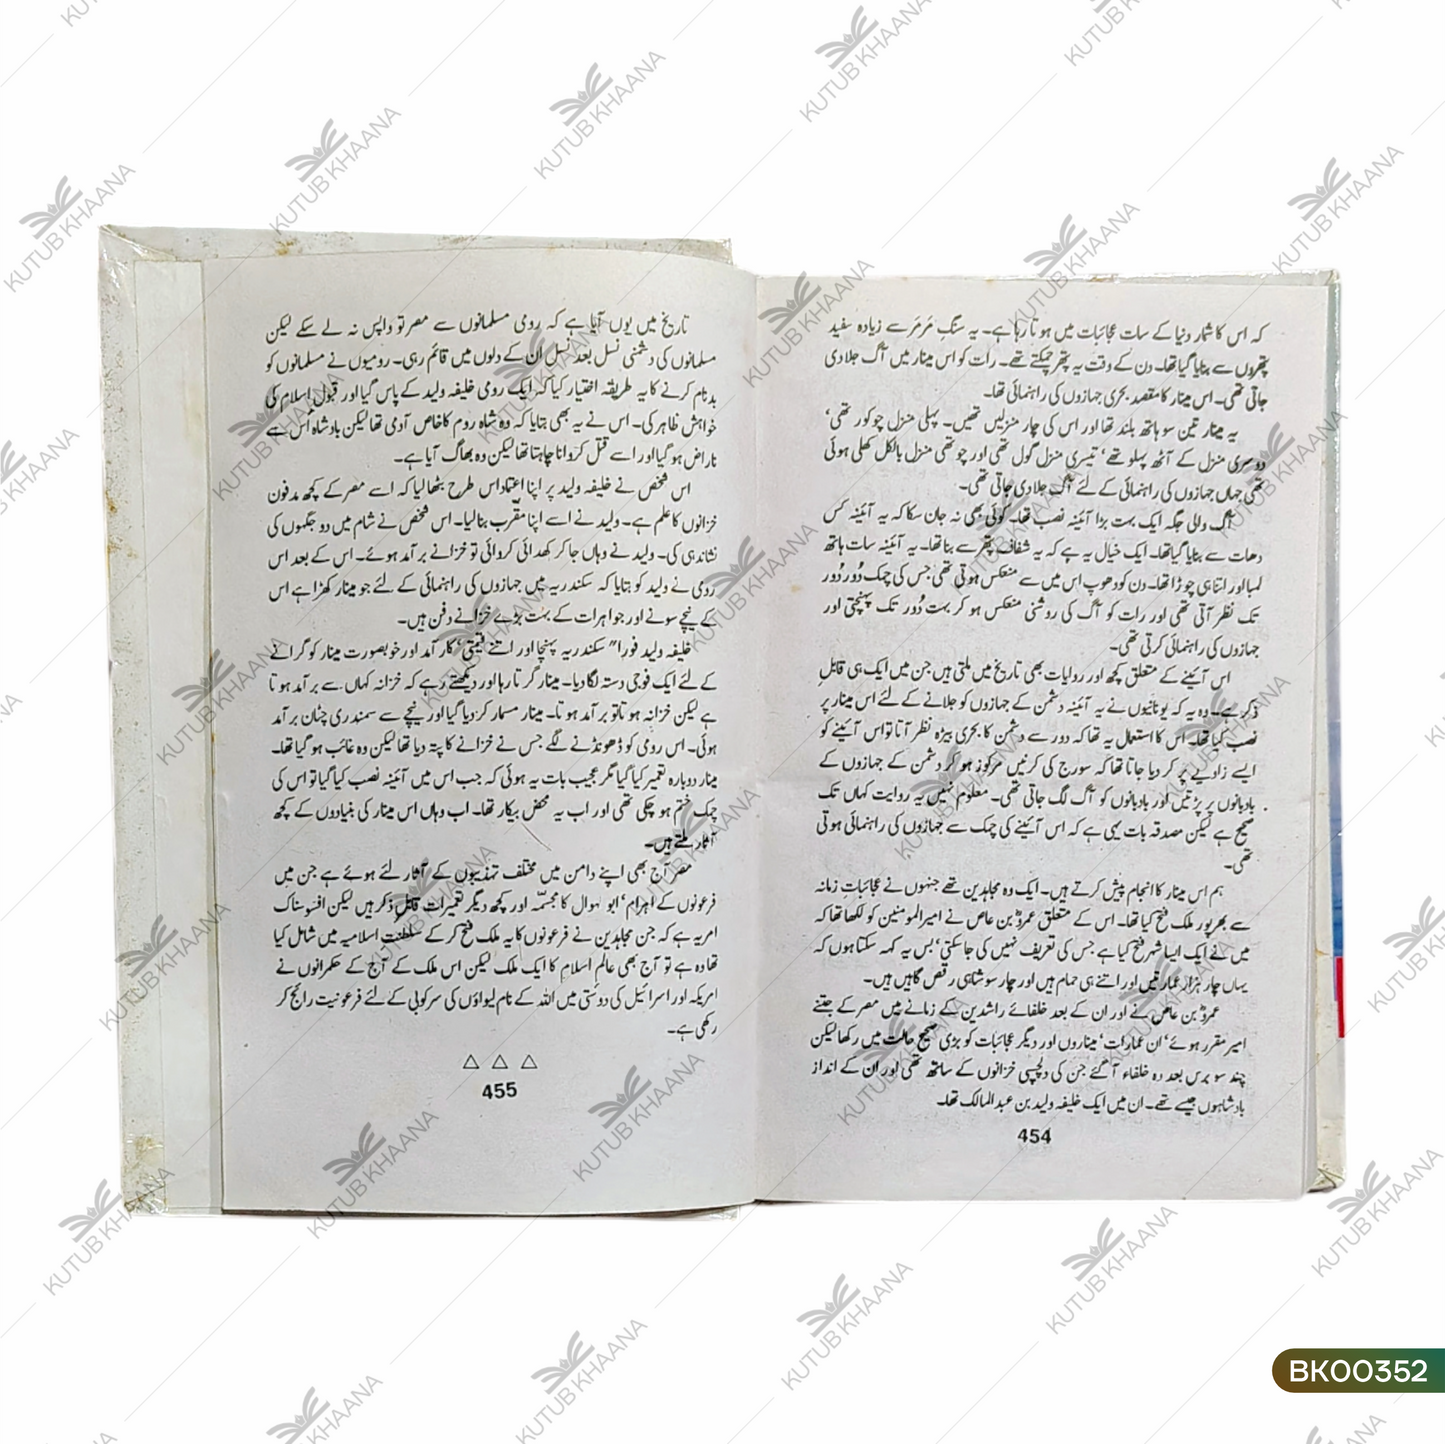 کہ اس کا شمار دنیا کے سات عجائبات میں ہوتا رہا ہے۔ یہ سنگِ مَرمَر سے زیادہ سفید
پتھروں سے بنایا گیا تھا۔ دن کے وقت یہ پتھر چمکتے تھے۔ رات کو اس مینار میں آگ جلا دی
جاتی تھی۔ اس مینار کا مقصد بحری جہازوں کی راہنمائی تھا۔
یہ مینار تین سو ہاتھ بلند تھا اور اس کی چار منزلیں تھیں۔ پہلی منزل چوکور تھی‘
دوسری منزل کے آٹھ پہلو تھے‘ تیسری منزل گول تھی اور چوتھی منزل بالکل کھلی ہوئی
تھی جہاں جہازوں کی راہنمائی کے لئے آگ جلا دی جاتی تھی۔
آگ والی جگہ ایک بہت بڑا آئینہ نصب تھا۔ کوئی بھی نہ جان سکا کہ یہ آئینہ کس
دھات سے بنایا گیا تھا۔ ایک خیال یہ ہے کہ یہ شفاف پتھر سے بنا تھا۔ یہ آئینہ سات ہاتھ
لمبا اور اتنا ہی چوڑا تھا۔ دن کو دھوپ اس میں سے منعکس ہوتی تھی جس کی چمک دُور دُور
تک نظر آتی تھی اور رات کو آگ کی روشنی منعکس ہو کر بہت دُور تک پہنچتی اور
جہازوں کی راہنمائی کرتی تھی۔
اس آئینے کے متعلق کچھ اور روایات بھی تاریخ میں ملتی ہیں جن میں ایک ہی قابلِ
ذکر ہے۔ وہ یہ کہ یونانیوں نے یہ آئینہ دشمن کے جہازوں کو جلانے کے لئے اس مینار پر
نصب کیا تھا۔ اس کا استعمال یہ تھا کہ دور سے دشمن کا بحری بیڑہ نظر آتا تو اس آئینے کو
ایسے زاویے پر کر دیا جاتا تھا کہ سورج کی کرنیں مرکوز ہو کر دشمن کے جہازوں کے
بادبانوں پر پڑتیں اور بادبانوں کو آگ لگ جاتی تھی۔ معلوم نہیں یہ روایت کہاں تک
صحیح ہے لیکن مصدقہ بات یہی ہے کہ اس آئینے کی چمک سے جہازوں کی راہنمائی ہوتی
تھی۔
ہم اس مینار کا انجام پیش کرتے ہیں۔ ایک وہ مجاہدین تھے جنہوں نے عجائباتِ زمانہ
سے بھرپور ملک فتح کیا تھا۔ اس کے متعلق عمروؓ بن عاص نے امیرالمومنین کو لکھا تھا کہ
میں نے ایک ایسا شہر فتح کیا ہے جس کی تعریف نہیں کی جا سکتی‘ بس یہ کہہ سکتا ہوں کہ
یہاں چار ہزار عمارتیں اور اتنے ہی حمام ہیں اور چار سو شاہی رقص گاہیں ہیں۔
عمروؓ بن عاص نے اور ان کے بعد خلفائے راشدین کے زمانے میں مصر کے جتنے
امیر مقرر ہوئے‘ ان عمارات‘ میناروں اور دیگر عجائبات کو بڑی صحیح حالت میں رکھا لیکن
چند سو برس بعد وہ خلفاء آ گئے جن کی دلچسپی خزانوں کے ساتھ تھی اور ان کے انداز
بادشاہوں جیسے تھے۔ ان میں ایک خلیفہ ولید بن عبدالمالک تھا۔
454
تاریخ میں یوں آیا ہے کہ رومی مسلمانوں سے مصر تو واپس نہ لے سکے لیکن
مسلمانوں کی دشمنی نسل بعد نسل ان کے دلوں میں قائم رہی۔ رومیوں نے مسلمانوں کو
بدنام کرنے کا یہ طریقہ اختیار کیا کہ ایک رومی خلیفہ ولید کے پاس گیا اور قبولِ اسلام کی
خواہش ظاہر کی۔ اس نے یہ بھی بتایا کہ وہ شاہِ روم کا خاص آدمی تھا لیکن بادشاہ اُس سے
ناراض ہو گیا اور اسے قتل کروانا چاہتا تھا لیکن وہ بھاگ آیا ہے۔
اس شخص نے خلیفہ ولید پر اپنا اعتماد اس طرح بٹھا لیا کہ اسے مصر کے کچھ مدفون
خزانوں کا علم ہے۔ ولید نے اسے اپنا مقرب بنا لیا۔ اس شخص نے شام میں دو جگہوں کی
نشاندہی کی۔ ولید نے وہاں جا کر کھدائی کروائی تو خزانے برآمد ہوئے۔ اس کے بعد اس
رومی نے ولید کو بتایا کہ سکندریہ میں جہازوں کی راہنمائی کے لئے جو مینار کھڑا ہے اس
کے نیچے سونے اور جواہرات کے بہت بڑے خزانے دفن ہیں۔
خلیفہ ولید فورا" سکندریہ پہنچا اور اتنے قیمتی‘ کار آمد اور خوبصورت مینار کو گرانے
کے لئے ایک فوجی دستہ لگا دیا۔ مینار گرتا رہا اور دیکھتے رہے کہ خزانہ کہاں سے برآمد ہوتا
ہے لیکن خزانہ ہوتا تو برآمد ہوتا۔ مینار مسمار کر دیا گیا اور نیچے سے سمندری چٹان برآمد
ہوئی۔ اس رومی کو ڈھونڈنے لگے جس نے خزانے کا پتہ دیا تھا لیکن وہ غائب ہو گیا تھا۔
مینار دوبارہ تعمیر کیا گیا مگر عجیب بات یہ ہوئی کہ جب اس میں آئینہ نصب کیا گیا تو اس کی
چمک ختم ہو چکی تھی اور اب یہ محض بیکار تھا۔ اب وہاں اس مینار کی بنیادوں کے کچھ
آثار ملتے ہیں۔
مصر آج بھی اپنے دامن میں مختلف تہذیبوں کے آثار لئے ہوئے ہے جن میں
فرعونوں کے اہرام‘ ابو الہول کا مجسمّہ اور کچھ دیگر تعمیرات قابلِ ذکر ہیں لیکن افسوسناک
امر یہ ہے کہ جن مجاہدین نے فرعونوں کا یہ ملک فتح کر کے سلطنتِ اسلامیہ میں شامل کیا
تھا وہ ہے تو آج بھی عالمِ اسلام کا ایک ملک لیکن اس ملک کے آج کے حکمرانوں نے
امریکہ اور اسرائیل کی دوستی میں اللہ کے نام لیواؤں کی سرکوبی کے لئے فرعونیت رائج کر
رکھی ہے۔
△ △ △
455
KUTUB KHAANA
BK00352